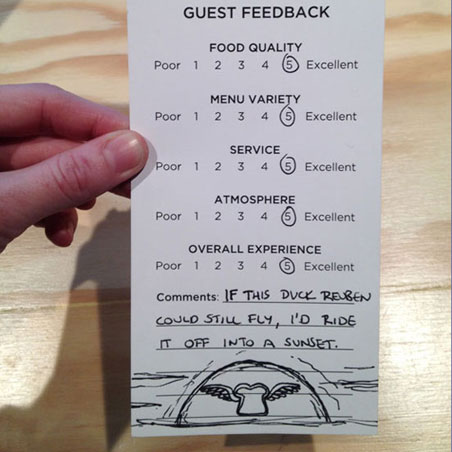 GUEST FEEDBACK
FOOD QUALITY
Poor 1 2 3 4 5 Excellent
MENU VARIETY
Poor 1 2 3 4 5 Excellent
SERVICE
Poor 1 2 3 4 5 Excellent
ATMOSPHERE
Poor 1 2 3 4 5 Excellent
OVERALL EXPERIENCE
Poor 1 2 3 4 5 Excellent
Comments: IF THIS DUCK REUBEN
COULD STILL FLY, I'D RIDE
IT OFF INTO A SUNSET.